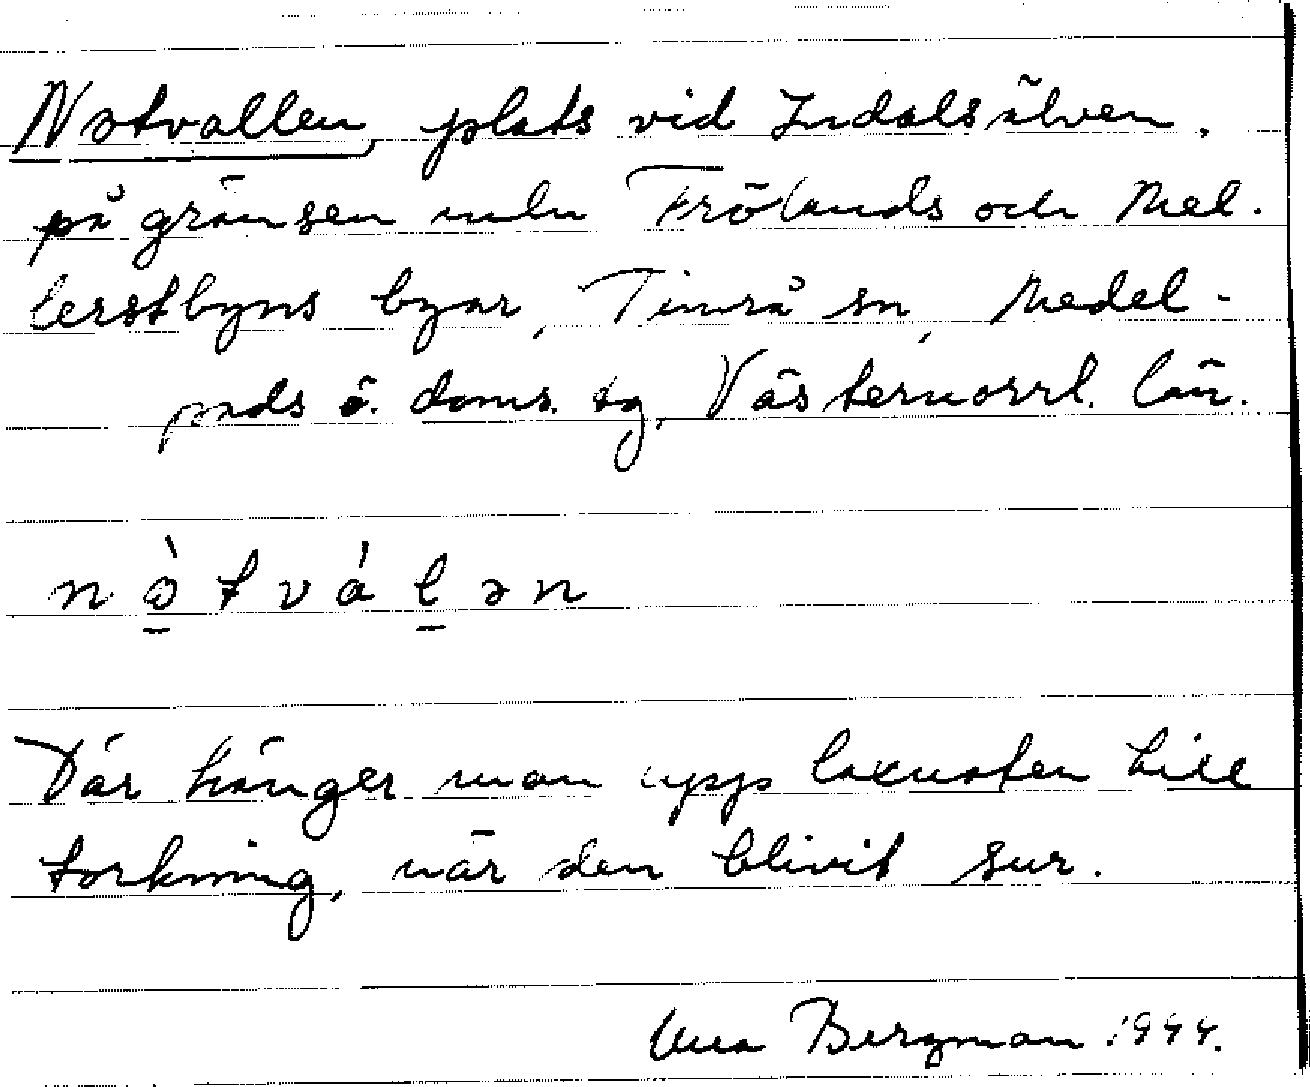 Notvallen, plats vid Indalsälven,
på gränsen mln Frölands och Mel-
lerstbyns byar, Timrå sn, Medel-
pads ö. doms. tg, Västernorrl. län.
nò̱tváḻən
Där hänger man upp laxnoten till
torkning, när den blivit sur.
Bergman 1944.